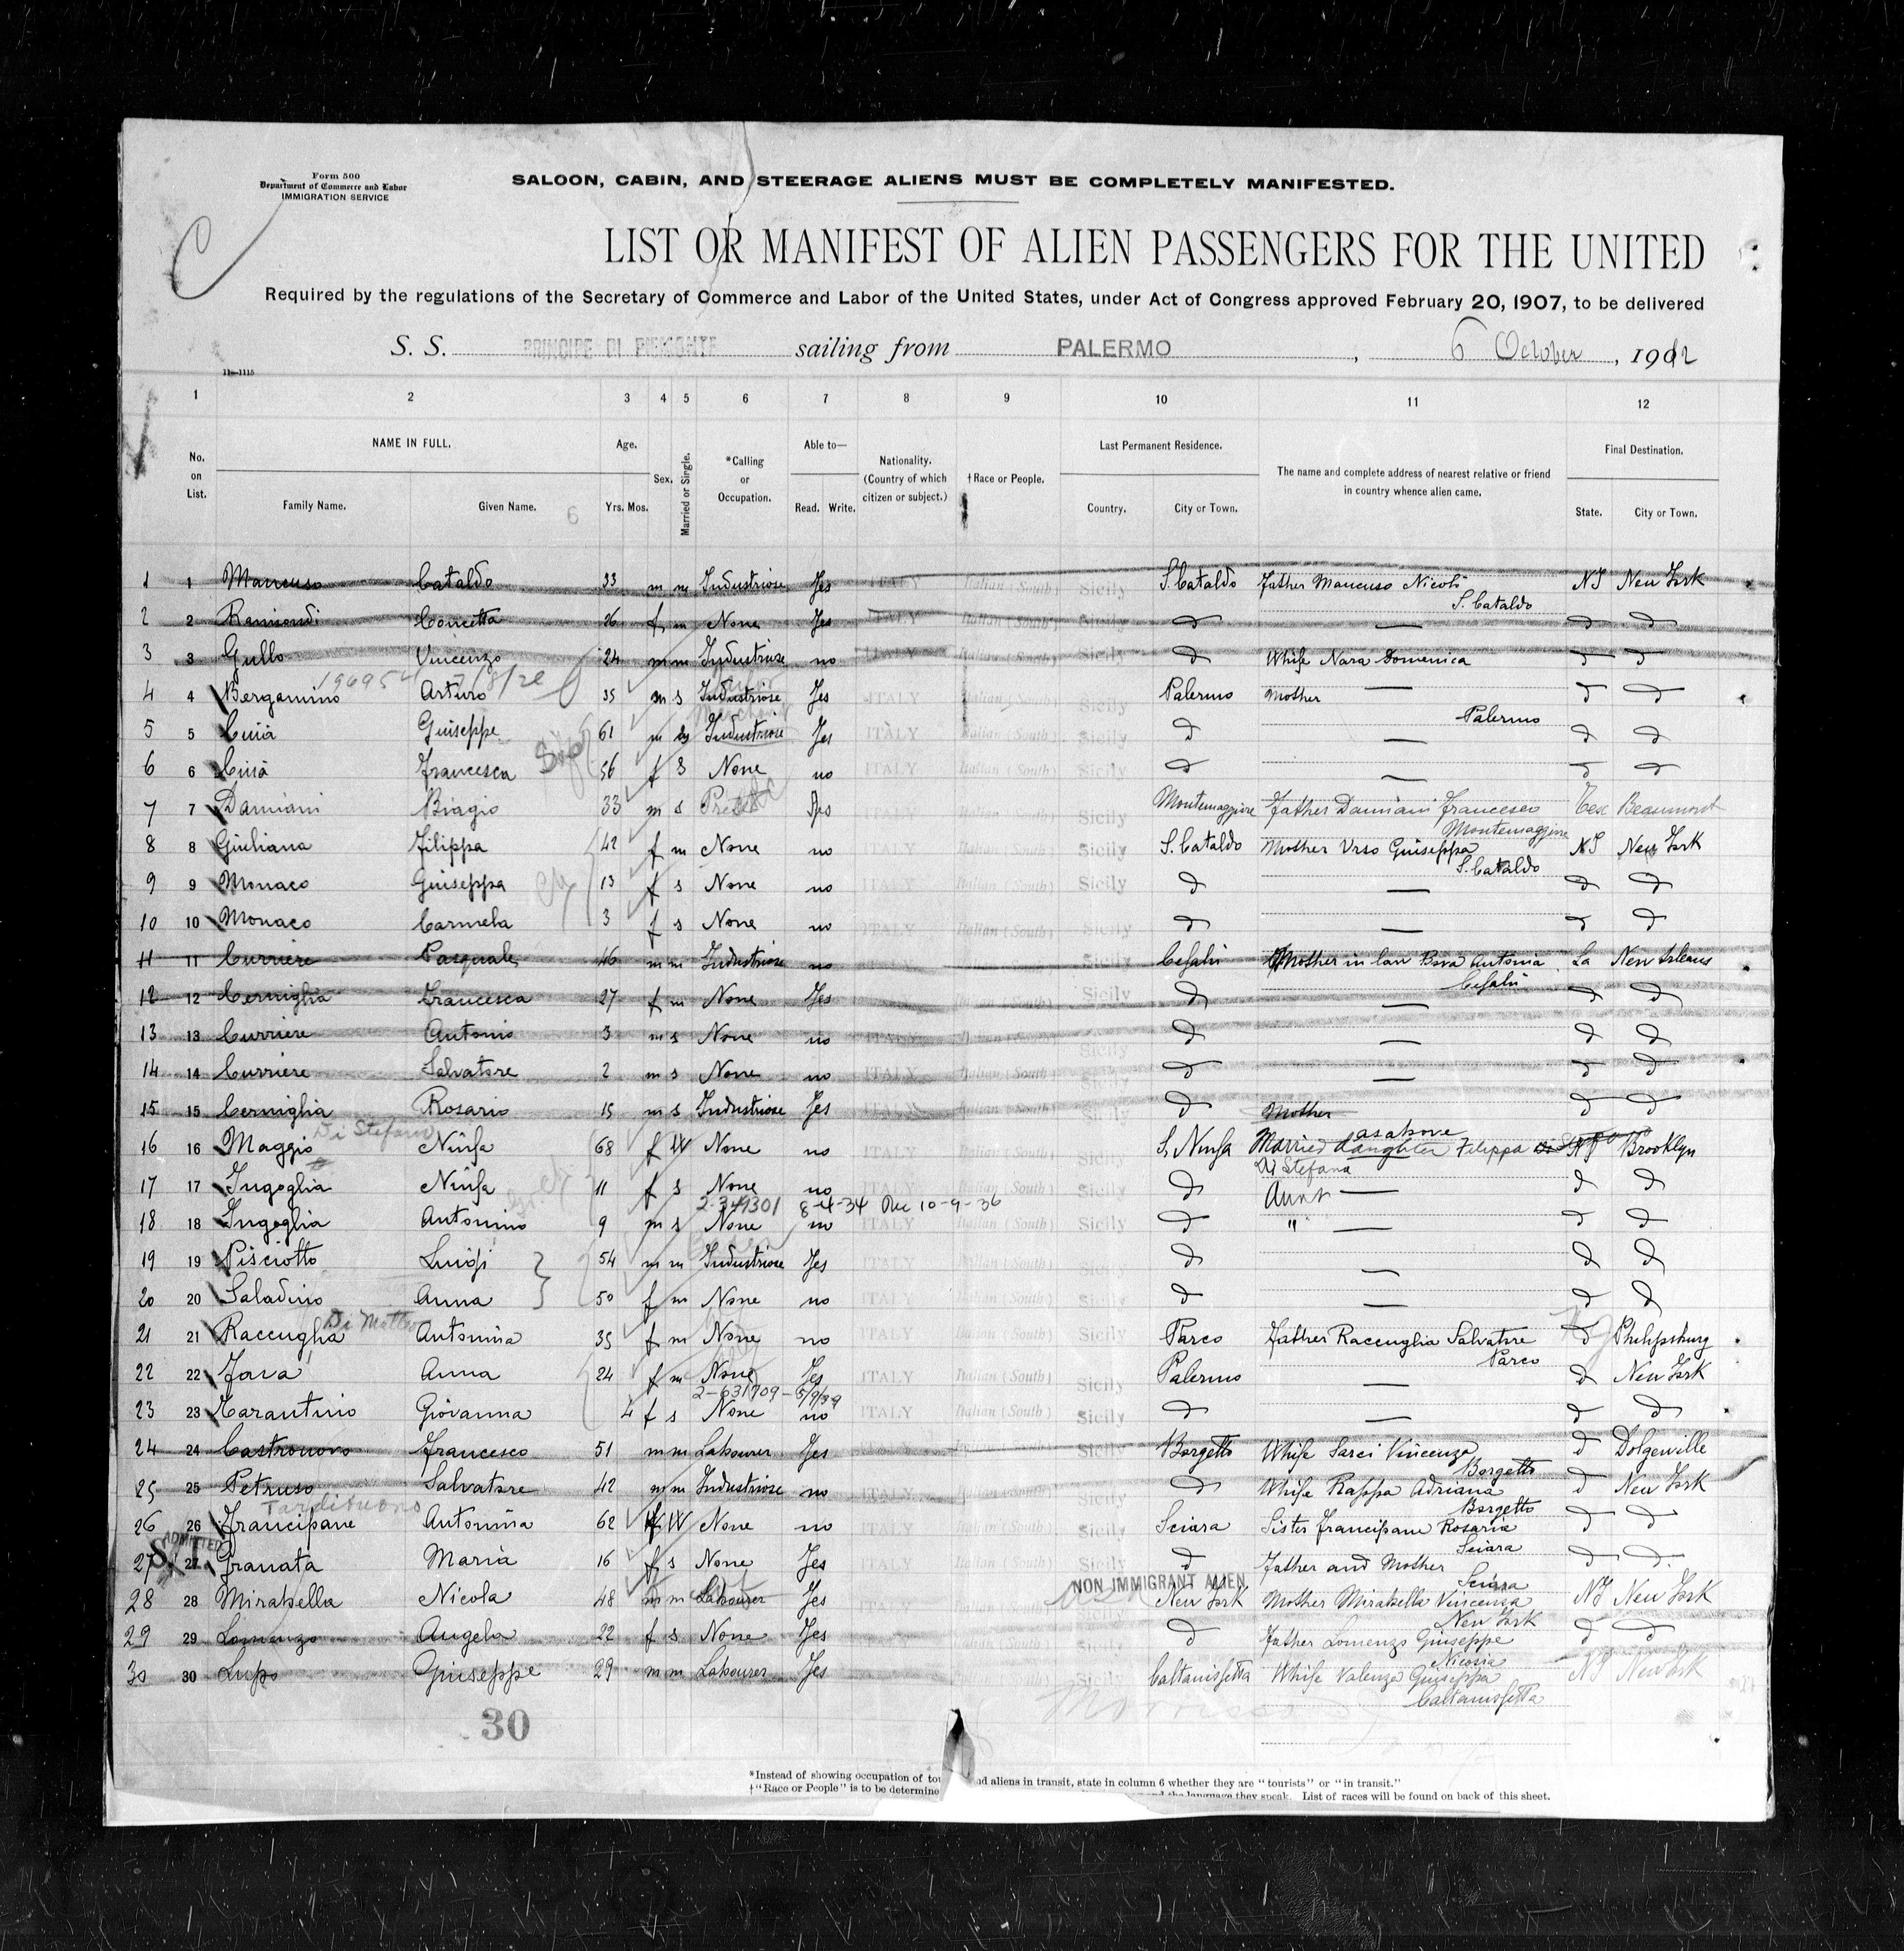 Form 500
Department of Commerce and Labor
IMMIGRATION SERVICE
SALOON, CABIN, AND STEERAGE ALIENS MUST BE COMPLETELY MANIFESTED.
C
LIST OR MANIFEST OF ALIEN PASSENGERS FOR THE UNITED
Required by the regulations of the Secretary of Commerce and Labor of the United States, under Act of Congress approved February 20, 1907, to be delivered
S. S. PRINCIPE DI PIEMONTE sailing from PALERMO, 6 October, 1912
11—1115
1 2 3 4 5 6 7 8 9 10 11 12
No. on List.
NAME IN FULL.
Family Name. Given Name.
6
Age.
Yrs. Mos.
Sex.
Married or Single.
*Calling or Occupation.
Able to—
Read. Write.
Nationality. (Country of which citizen or subject.)
†Race or People.
Last Permanent Residence.
Country. City or Town.
The name and complete address of nearest relative or friend in country whence alien came.
Final Destination.
State. City or Town.
1 1 Mancuso Cataldo 33 m m Industriose Yes ITALY Italian (South) Sicily S. Cataldo Father Mancuso Nicolò NY New York
S. Cataldo
2 2 Raimondi Concetta 26 f m None Yes ITALY Italian (South) Sicily d — d d
3 3 Gullo Vincenzo 24 m m Industriose no ITALY Italian (South) Sicily d Whife Nara Domenica d d
4 4 Bergamino Arturo 35 m s Industriose Yes ITALY Italian (South) Sicily Palermo Mother — d d
Palermo
5 5 Cinà Giuseppe 61 m Industriose Yes ITALY Italian (South) Sicily d — d d
6 6 Cinà Francesca 56 f s None no ITALY Italian (South) Sicily d — d d
7 7 Damiani Biagio 33 m s Priest Yes Italian (South) Sicily Montemaggiore Father Damiani Francesco Tex Beaumont
Montemaggiore
8 8 Giuliana Filippa 42 f m None no ITALY Italian (South) Sicily S. Cataldo Mother Urso Giuseppa NY New York
S. Cataldo
9 9 Monaco Giuseppa 13 f s None no ITALY Italian (South) Sicily d — d d
10 10 Monaco Carmela 3 f s None no ITALY Italian (South) Sicily d — d d
11 11 Curriere Pasquale 46 m m Industriose no Sicily Cefalù Mother in law Bova Antonia La New Orleans
Cefalù
12 12 Cerniglia Francesca 27 f m None Yes Sicily d — d d
13 13 Curriere Antonio 3 m s None no ITALY Italian (South) Sicily d — d d
14 14 Curriere Salvatore 2 m s None no ITALY Italian (South) Sicily d — d d
15 15 Cerniglia Rosario 15 m s Industriose Yes ITALY Italian (South) Sicily d Mother d d
Di Stefano as above
16 16 Maggio Ninfa 68 f W None no ITALY Italian (South) Sicily S. Ninfa Married daughter Filippa Brooklyn
Di Stefana
17 17 Ingoglia Ninfa 11 f s None no ITALY Italian (South) Sicily d Aunt — d d
2-349301 8-4-34 10-9-36
18 18 Ingoglia Antonino 9 m s None no ITALY Italian (South) Sicily d " — d d
19 19 Pisciotto Luigi 54 m m Industriose Yes ITALY Italian (South) Sicily d — d d
20 20 Saladino Anna 50 f m None no ITALY Italian (South) Sicily d — d d
Di Matteo
21 21 Raccuglia Antonina 35 f m None no ITALY Italian (South) Sicily Parco Father Raccuglia Salvatore d Philipsburg
Parco
22 22 Fava Anna 24 f m None Yes ITALY Italian (South) Sicily Palermo — d New York
2-631709-5/9/39
23 23 Tarantino Giovanna 4 f s None no ITALY Italian (South) Sicily d — d d
24 24 Castronovo Francesco 51 m m Labourer Yes Sicily Borgetto Whife Sarci Vincenza d Dolgeville
Borgetto
25 25 Petruso Salvatore 42 m m Industriose no ITALY Italian (South) Sicily d Whife Rappa Adriana d New York
Borgetto
26 26 Francipane Antonina 62 f W None no ITALY Italian (South) Sicily Sciara Sister Francipani Rosaria d d
Sciara
ADMITTED
27 27 Granata Maria 16 f s None Yes ITALY Italian (South) Sicily d Father and Mother d d
Sciara
NON IMMIGRANT ALIEN
28 28 Mirabella Nicola 48 m m Labourer Yes ITALY Italian (South) Sicily New York Mother Mirabella Vincenza NY New York
New York
29 29 Lomenzo Angela 22 f s None Yes Sicily d Father Lomenzo Giuseppe d d
Nicosia
30 30 Lupo Giuseppe 29 m m Labourer Yes Sicily Caltanissetta Whife Valenza Giuseppa NY New York
Caltanissetta
30
*Instead of showing occupation of tou nd aliens in transit, state in column 6 whether they are "tourists" or "in transit."
†"Race or People" is to be determine and the language they speak. List of races will be found on back of this sheet.